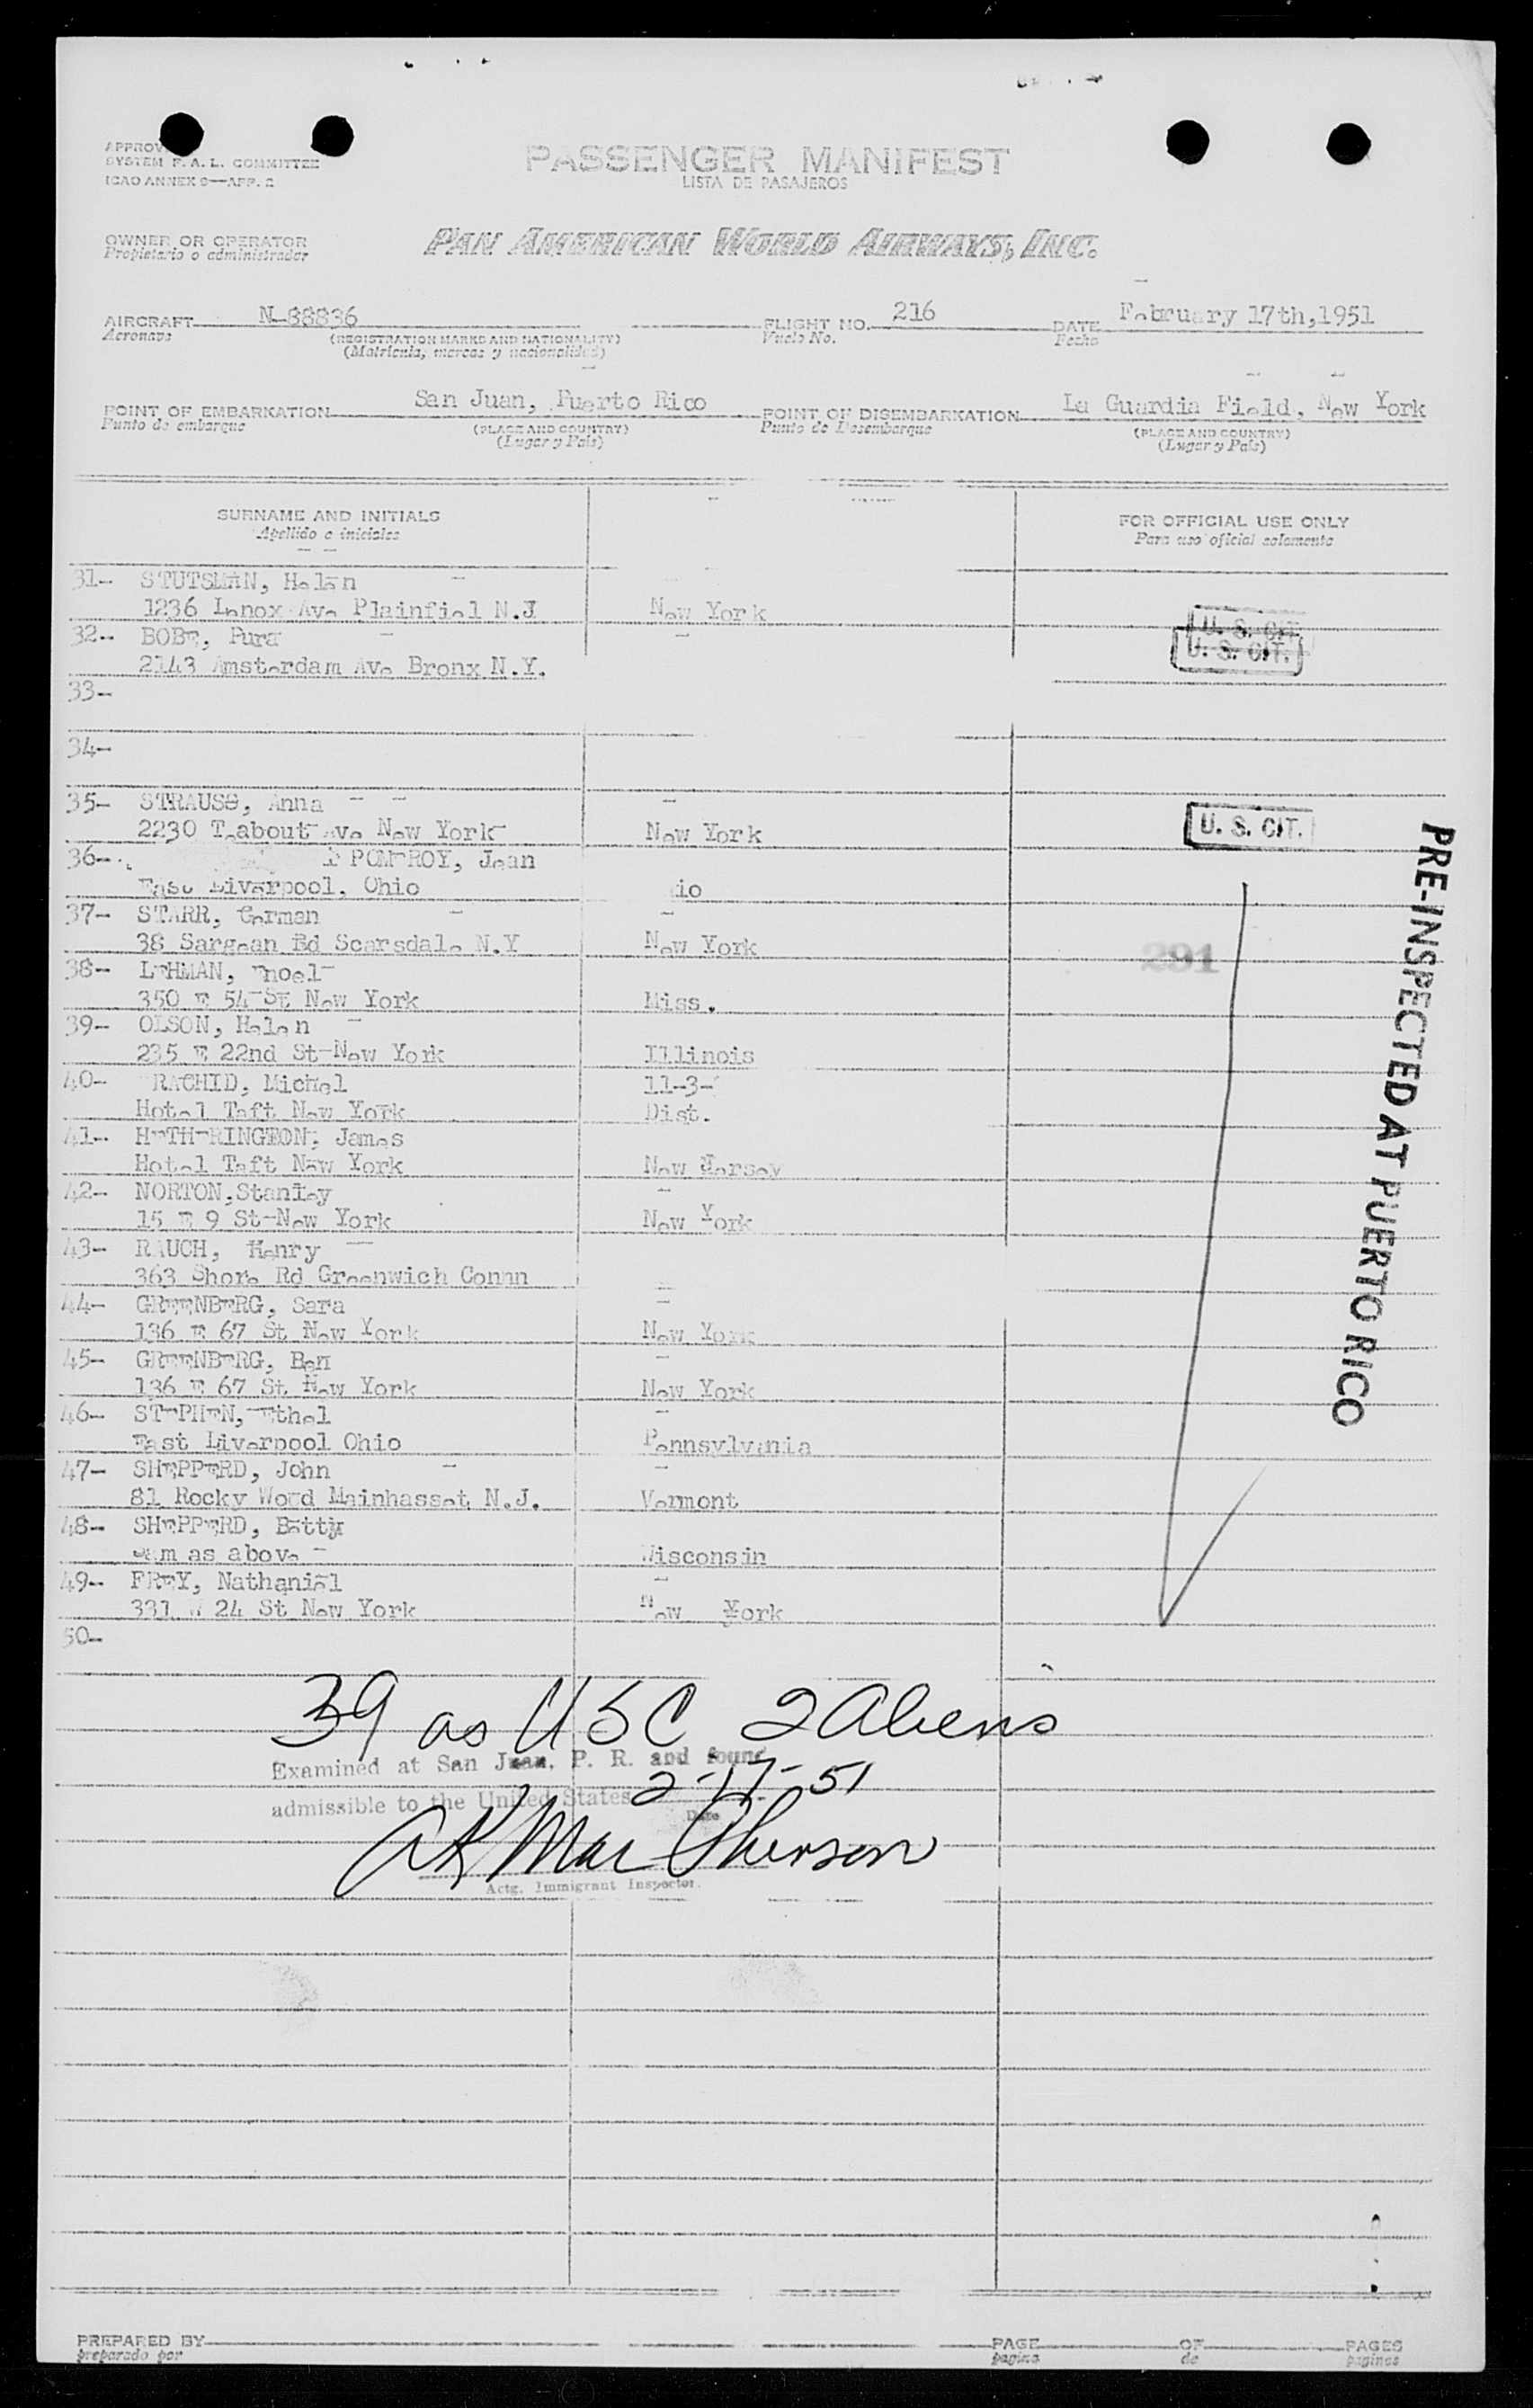 SYSTEM F.A.L. COMMITTEE
ICAO ANNEX 9—APP. 2
PASSENGER MANIFEST
LISTA DE PASAJEROS
OWNER OR OPERATOR
Propietario o administrador
PAN AMERICAN WORLD AIRWAYS, INC.
AIRCRAFT N-88836 FLIGHT NO. 216 DATE February 17th,1951
Aeronave (REGISTRATION MARKS AND NATIONALITY) Vuelo No. Fecha
(Matricula, marcas y nacionalidad)
POINT OF EMBARKATION San Juan, Puerto Rico POINT OF DISEMBARKATION La Guardia Field, New York
Punto de embarque (PLACE AND COUNTRY) Punto de Desembarque (PLACE AND COUNTRY)
(Lugar y País) (Lugar y País)
SURNAME AND INITIALS FOR OFFICIAL USE ONLY
Apellido e iniciales Para uso oficial solamente
31- STUTSMAN, Helen
1236 Lenox Ave Plainfiel N.J New York
U. S. CIT.
32- BOBE, Pura
U. S. CIT.
2143 Amsterdam Ave Bronx N.Y.
33-
34-
35- STRAUSS, Anna
2230 Teabout Ave New York New York U. S. CIT.
36- POMEROY, Jean
East Liverpool, Ohio io
37- STARR, German
38 Sargean Rd Scarsdale N.Y New York
291
38- LEHMAN, Enoel
350 E 54 St New York Miss.
39- OLSON, Helen
235 E 22nd St-New York Illinois
40- RACHID, Michel 11-3-
Hotel Taft New York Dist.
41- HETHERINGTON, James
Hotel Taft New York New Jersey
42- NORTON, Stanley
15 E 9 St-New York New York
43- RAUCH, Henry
363 Shore Rd Greenwich Connn
44- GREENBERG, Sara
136 E 67 St New York New York
45- GREENBERG, Ben
136 E 67 St New York New York
46- STEPHEN, Ethel
East Liverpool Ohio Pennsylvania
47- SHEPPERD, John
81 Rocky Wood Mainhasset N.J. Vermont
48- SHEPPERD, Betty
Sam as above Wisconsin
49- FREY, Nathaniel
331 W 24 St New York New York
50-
PRE-INSPECTED AT PUERTO RICO
39 as USC 2 Aliens
Examined at San Juan, P. R. and found
admissible to the United States 2-17-51
Date
AK MacPherson
Actg. Immigrant Inspector.
PREPARED BY PAGE OF PAGES
preparado por pagina de paginas